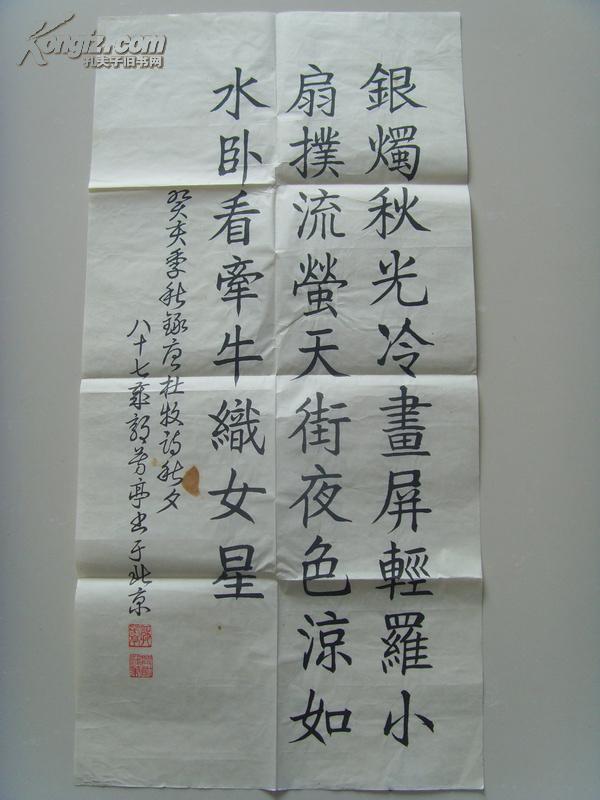 銀燭秋光冷畫屏輕羅小
扇撲流螢天街夜色涼如
水卧看牽牛織女星
癸亥季秋錄唐杜牧詩秋夕
八十七歲郭芳亭書于北京
Kongfz.com
孔夫子旧书网